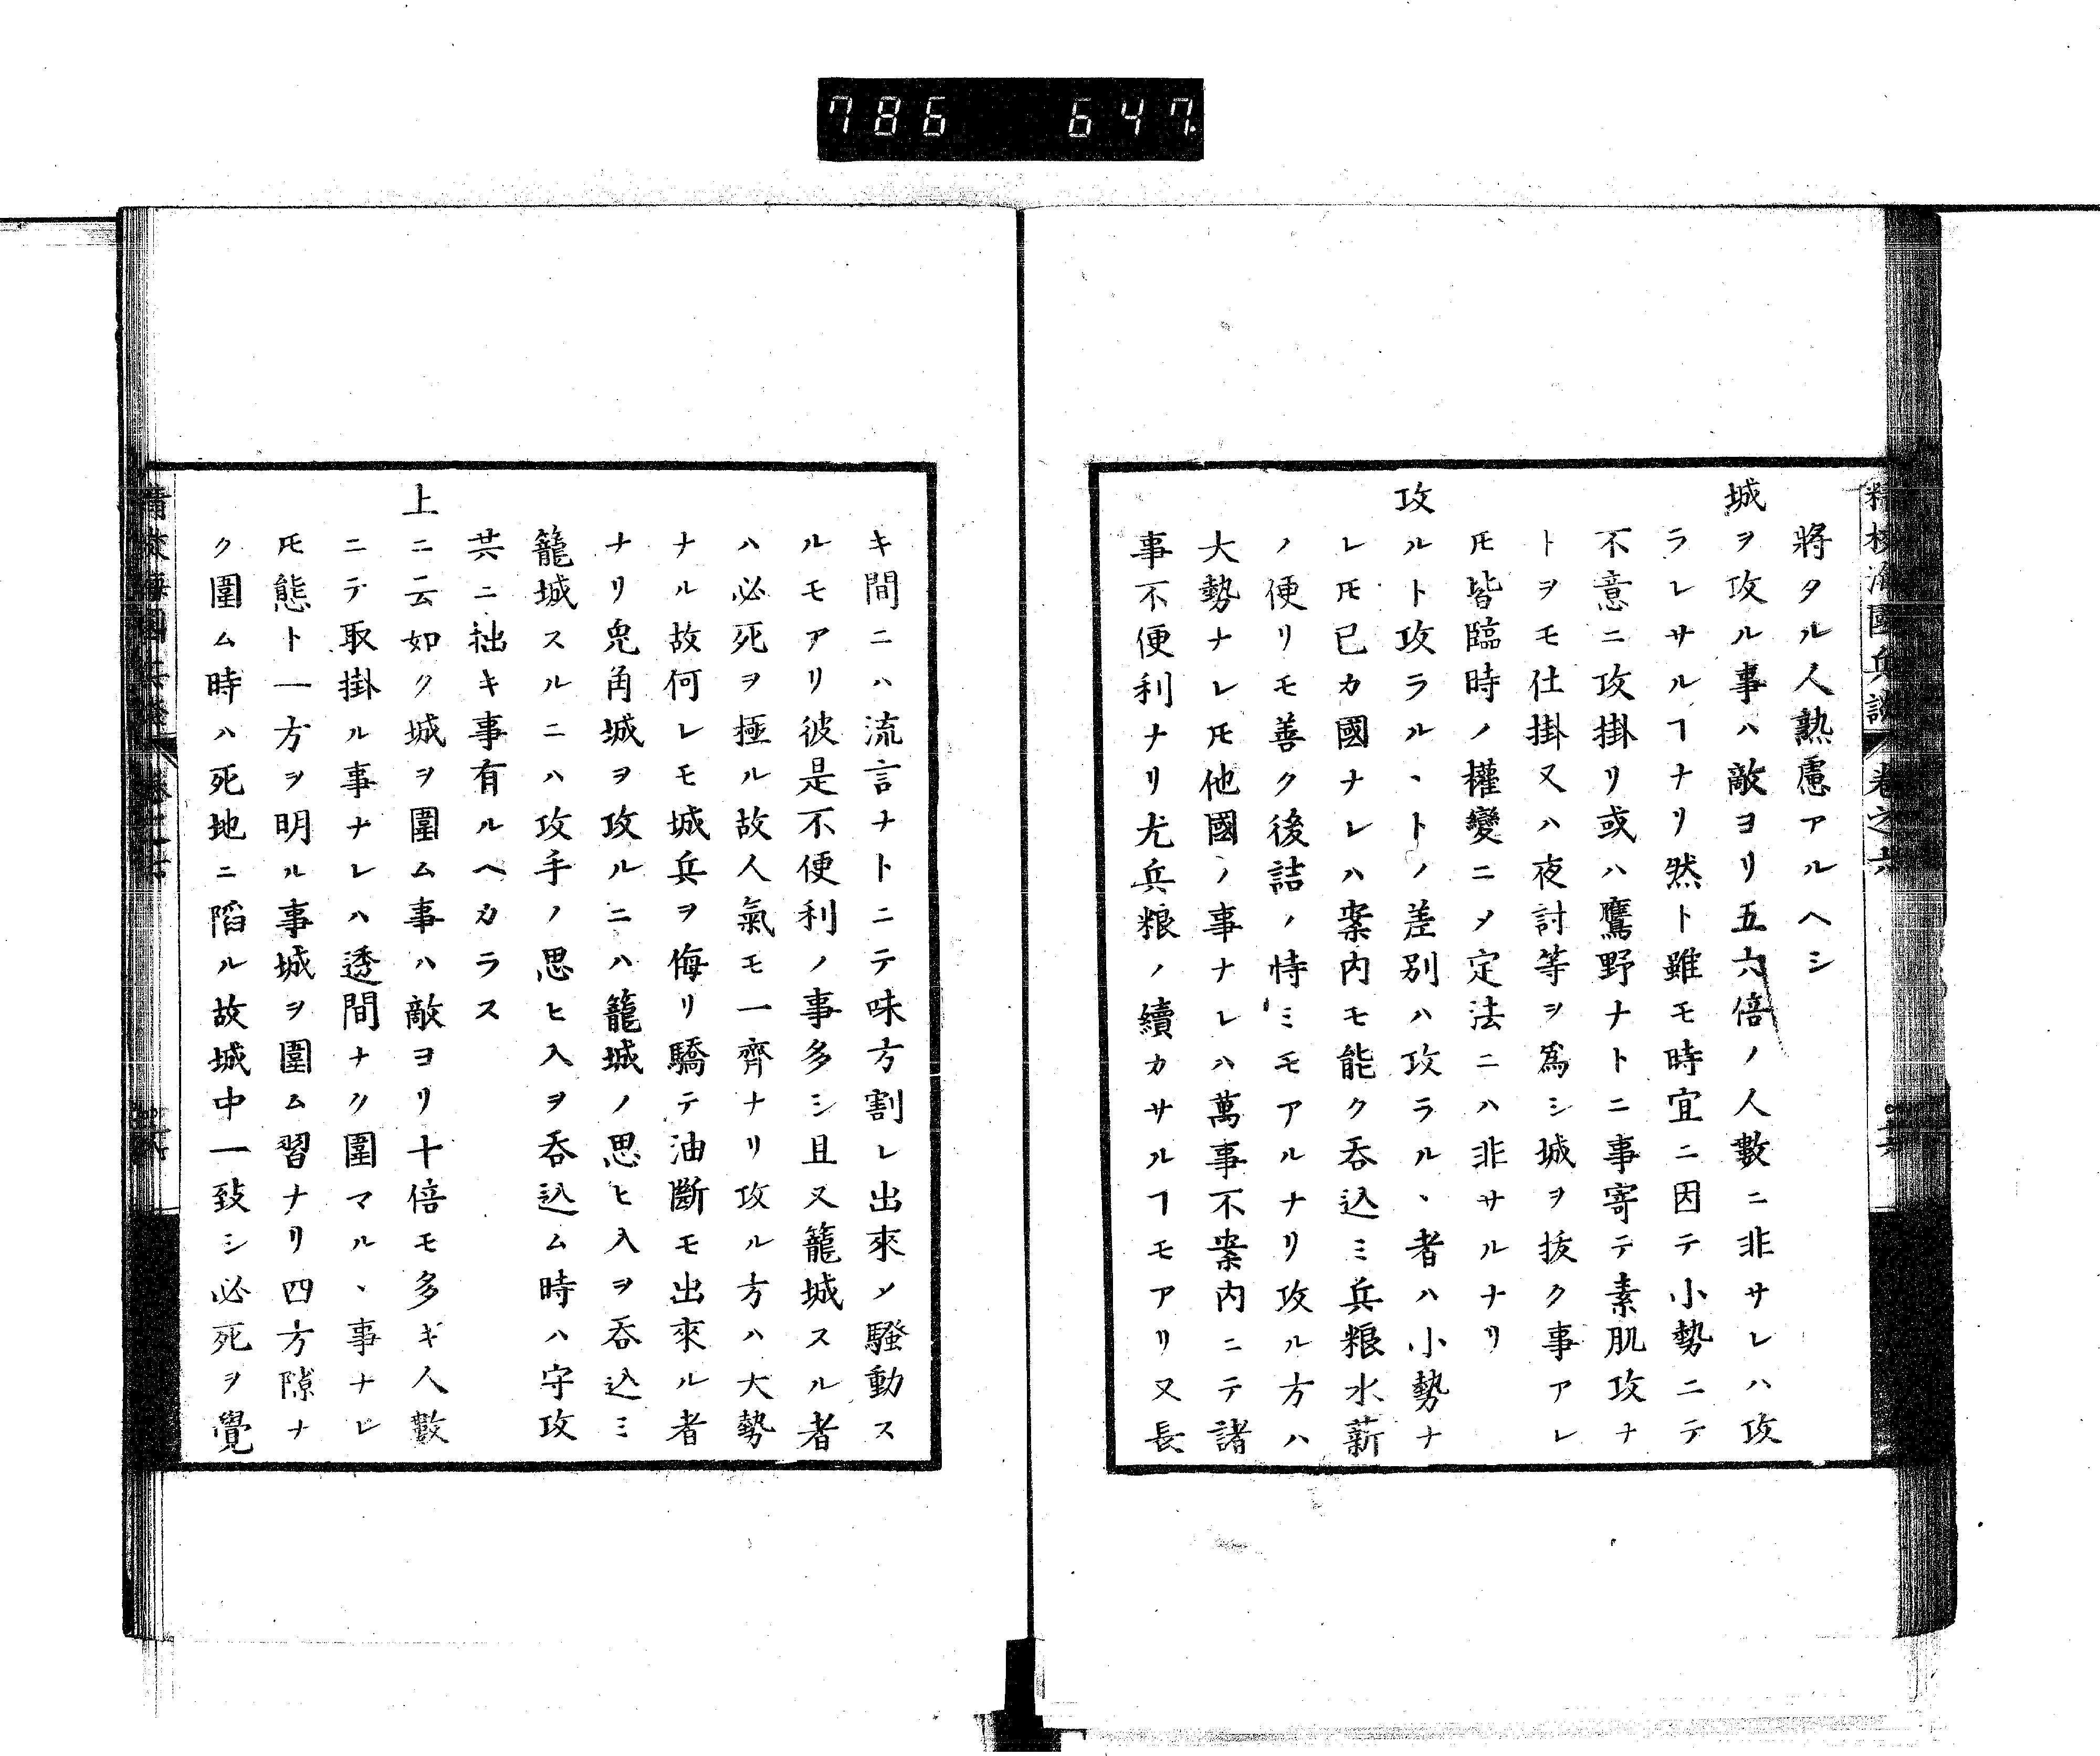 786 647
精校海國兵談 卷之六
將タル人熟慮アルヘシ
城ヲ攻ル事ハ敵ヨリ五六倍ノ人數ニ非サレハ攻
ラレサルヿナリ然ト雖モ時宜ニ因テ小勢ニテ
不意ニ攻掛リ或ハ鷹野ナトニ事寄テ素肌攻ナ
トヲモ仕掛又ハ夜討等ヲ爲シ城ヲ拔ク事アレ
𪜈皆臨時ノ權變ニメ定法ニハ非サルナリ
攻ルト攻ラル、トノ差別ハ攻ラル、者ハ小勢ナ
レ𪜈已カ國ナレハ案内モ能ク呑込ミ兵粮水薪
ノ便リモ善ク後詰ノ恃ミモアルナリ攻ル方ハ
大勢ナレ𪜈他國ノ事ナレハ萬事不案内ニテ諸
事不便利ナリ尤兵粮ノ續カサルヿモアリ又長
キ間ニハ流言ナトニテ味方割レ出來ソ騷動ス
ルモアリ彼是不便利ノ事多シ且又籠城スル者
ハ必死ヲ極ル故人氣モ一齊ナリ攻ル方ハ大勢
ナル故何レモ城兵ヲ侮リ驕テ油斷モ出來ル者
ナリ兎角城ヲ攻ルニハ籠城ノ思ヒ入ヲ呑込ミ
籠城スルニハ攻手ノ思ヒ入ヲ呑込ム時ハ守攻
共ニ拙キ事有ルヘカラス
上ニ云如ク城ヲ圍ム事ハ敵ヨリ十倍モ多キ人數
ニテ取掛ル事ナレハ透間ナク圍マル、事ナレ
𪜈態ト一方ヲ明ル事城ヲ圍ム習ナリ四方隙ナ
ク圍ム時ハ死地ニ陷ル故城中一致シ必死ヲ覺